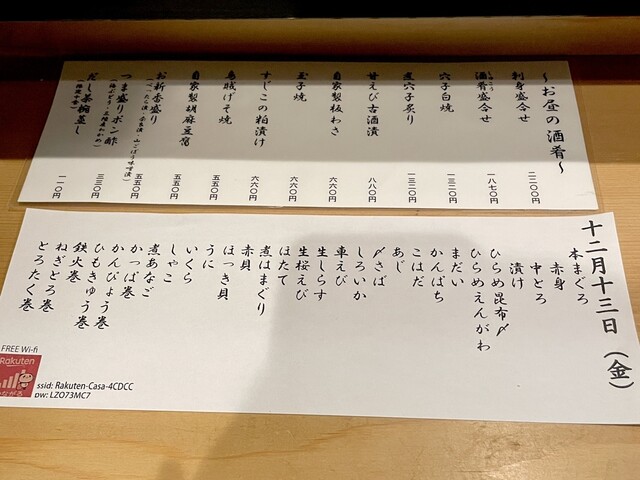 〜お昼の酒肴〜
刺身盛合せ 二二〇〇円
酒肴盛合せ 一八七〇円
穴子白焼 一三二〇円
煮穴子炙り 一三二〇円
甘えび古酒漬 八八〇円
自家製板わさ 六六〇円
玉子焼 六六〇円
すじこの粕漬け 六六〇円
烏賊げそ焼 五五〇円
自家製胡麻豆腐 五五〇円
お新香盛り 五五〇円
つま盛りポン酢 三三〇円
だし茶碗蒸し 一一〇円
十二月十三日（金）
本まぐろ
赤身
中とろ
漬け
ひらめ昆布〆
ひらめえんがわ
まだい
かんぱち
こはだ
あじ
〆さば
しろいか
車えび
生しらす
生桜えび
ほたて
煮はまぐり
赤貝
ほっき貝
うに
いくら
しゃこ
煮あなご
かっぱ巻
かんぴょう巻
ひもきゅう巻
鉄火巻
ねぎとろ巻
とろたく巻
FREE Wi-fi
Rakuten
ssid: Rakuten-Casa-4CDCC
pw: LZO73MC7